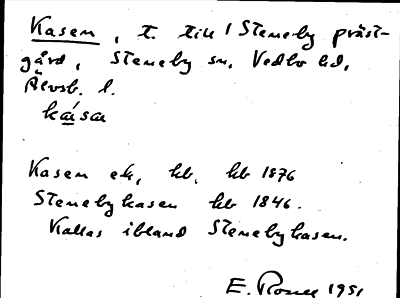 Kasen, t. till 1 Steneby präst-
gård, Steneby sn, Vedbo hd,
Älvsb. l.
ká̱san
Kasen ek, kb, kb 1876
Stenebykasen kb 1846.
Kallas ibland Stenebykasen.
E. 1951